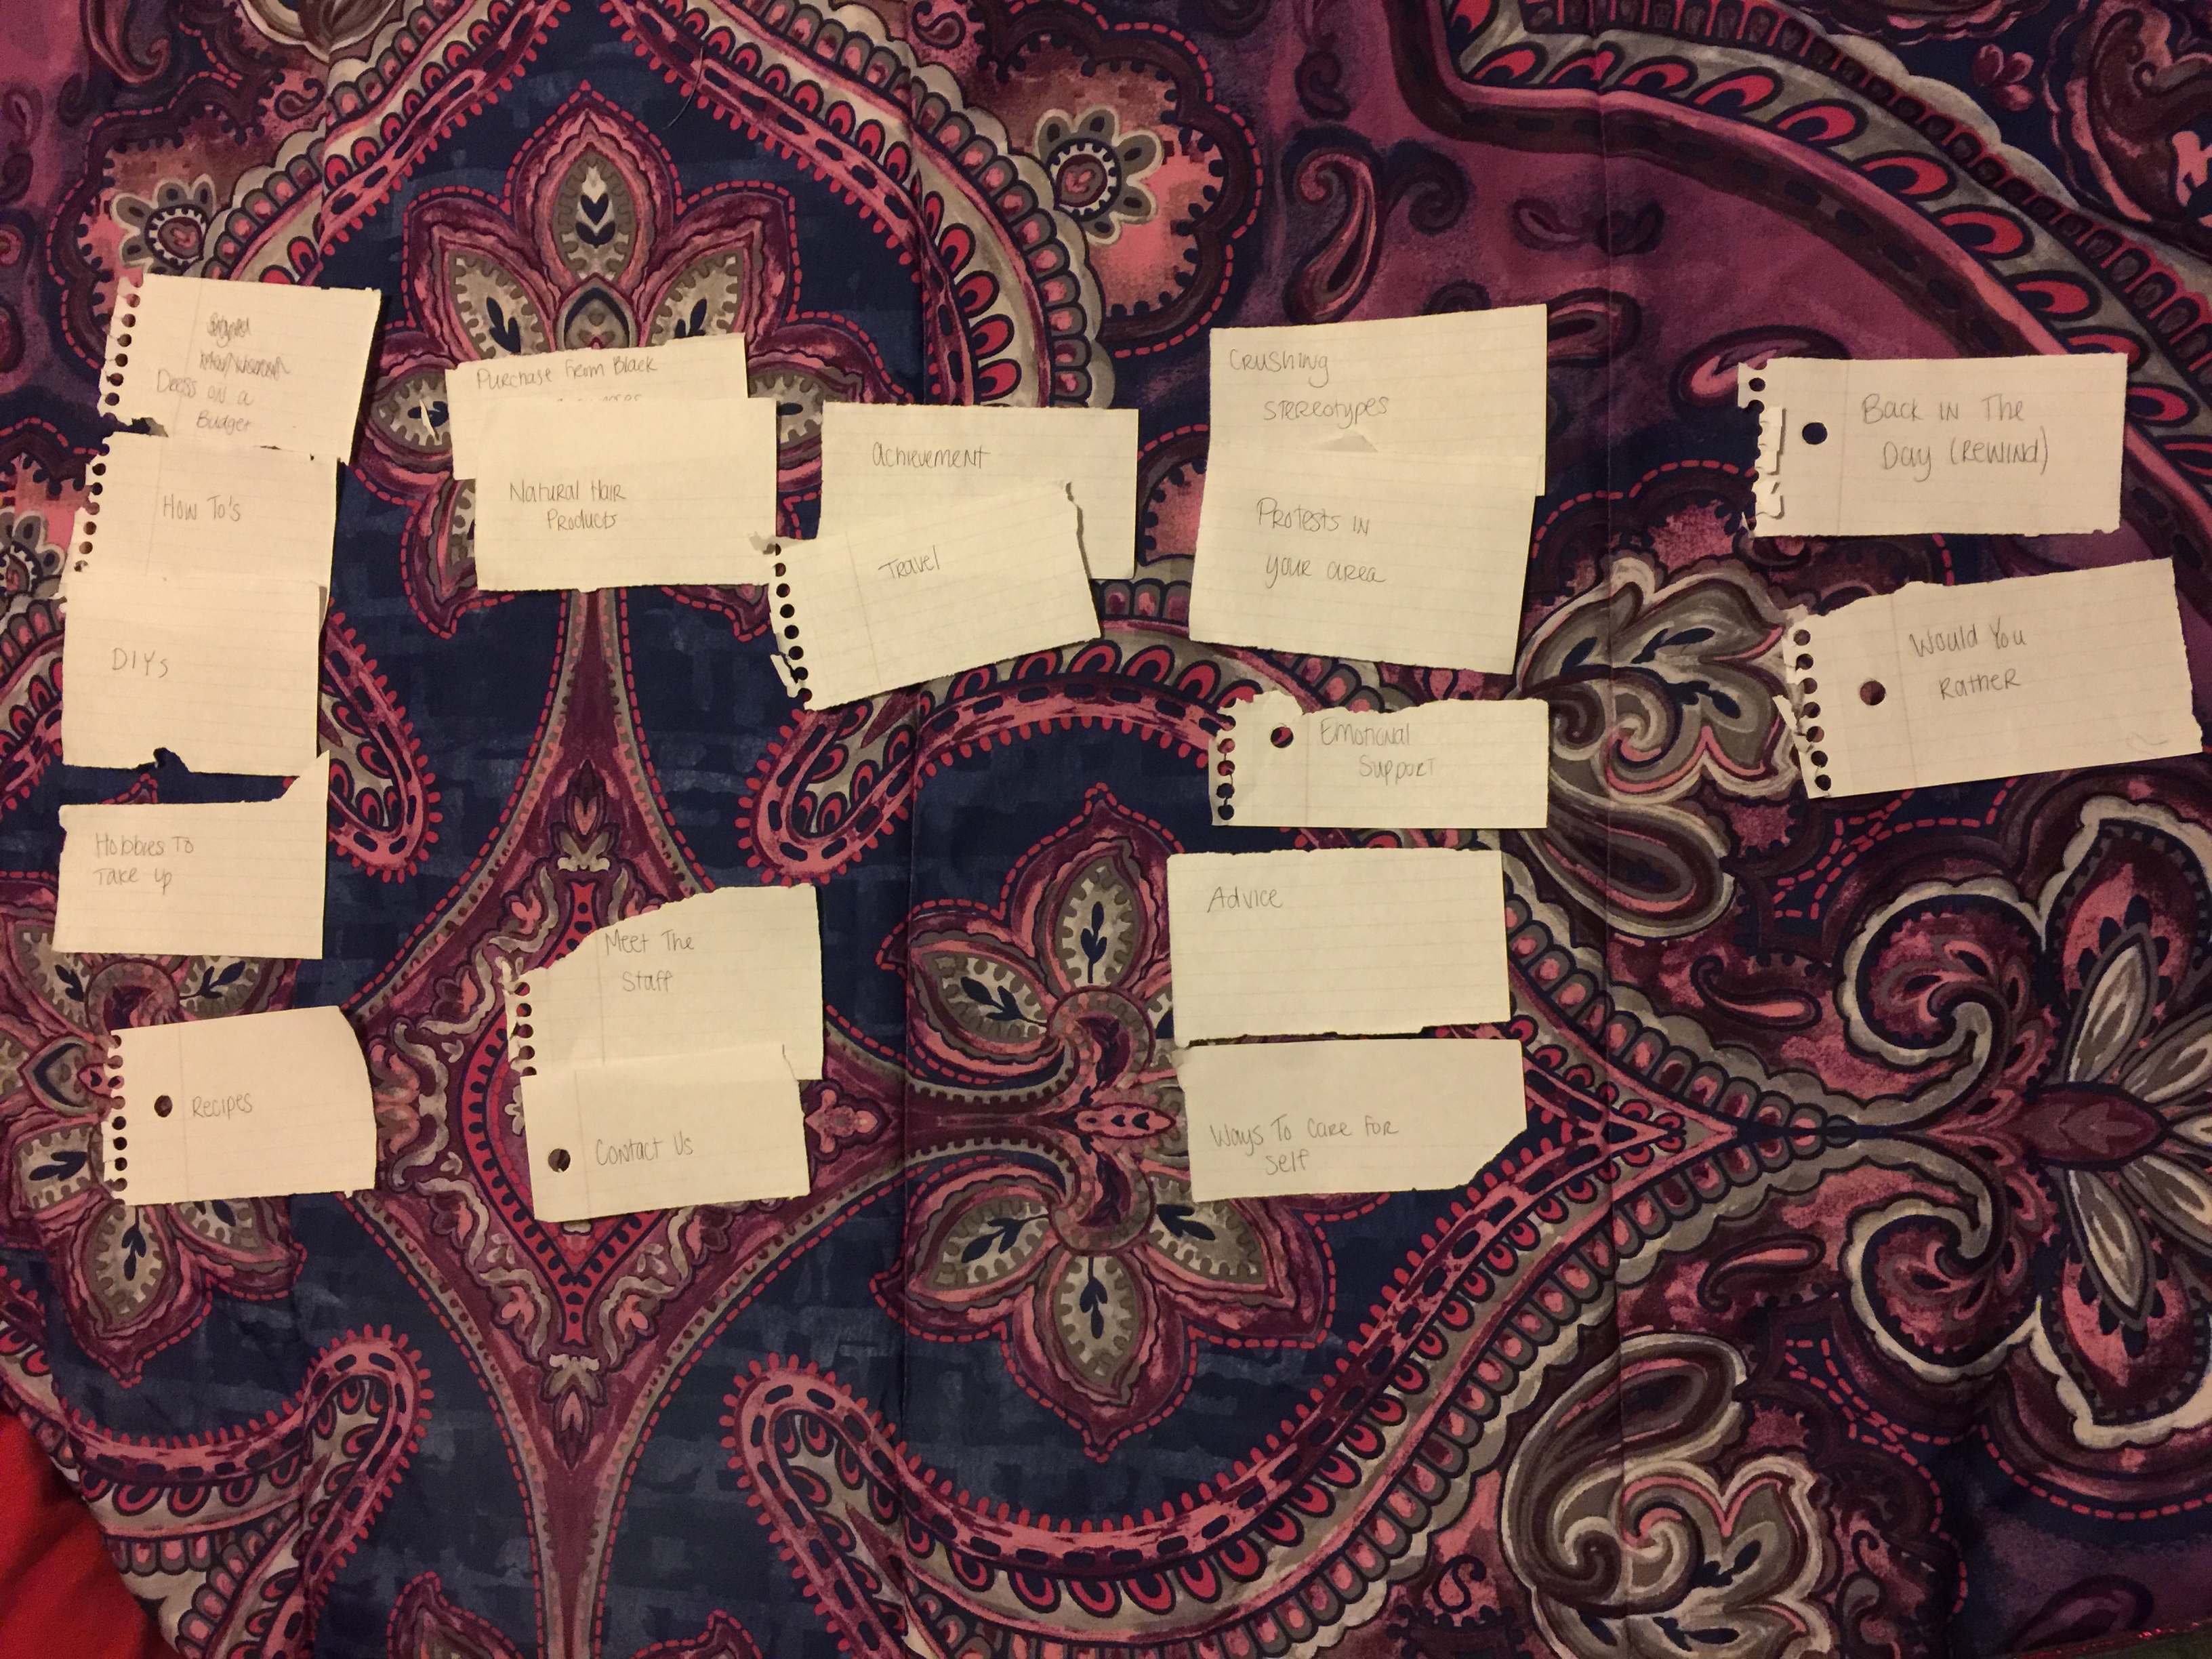 Dress on a
Budget
How To's
DIYs
Hobbies To
Take up
Recipes
Purchase From Black
Natural Hair
Products
Meet The
Staff
Contact Us
Achievement
Travel
Crushing
Stereotypes
Protests in
your area
Emotional
Support
Advice
Ways To Care For
Self
Back in The
Day (Rewind)
Would You
Rather